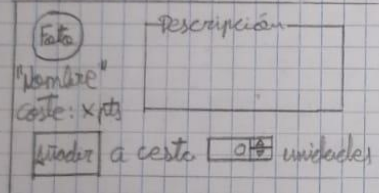 Foto
Descripción
"Nombre"
coste: x pts
Añadir a cesta 0 unidades